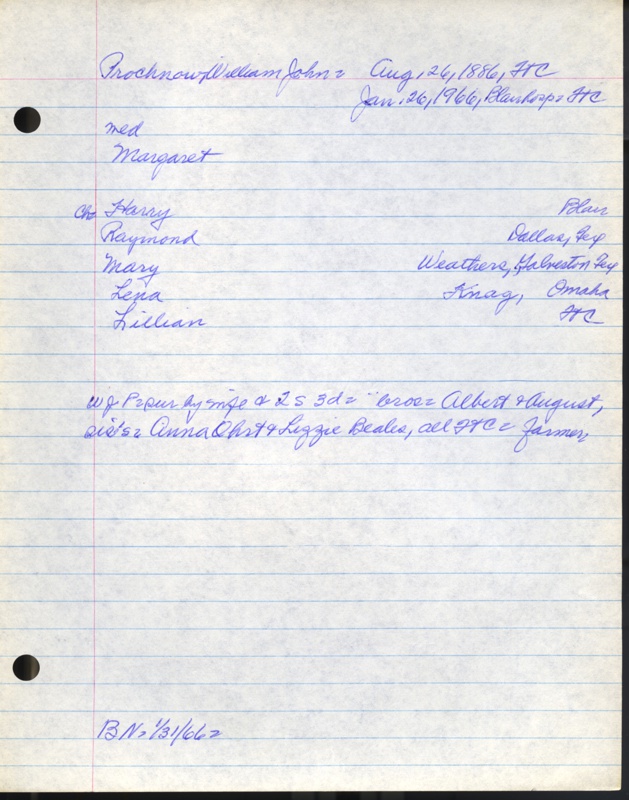 Prochnow, William John = Aug. 26, 1886, FTC
Jan. 26, 1966, Blair hosp = FTC
med
Margaret
Ch = Harry Blair
Raymond Dallas, Tex
Mary Weathers, Galveston Tex
Lena Knag, Omaha
Lillian FTC
WJP = sur by wife & 2 s 3 d = " bros = Albert & August,
sis's = Anna Ohrt & Lizzie Beales, all FTC = farmer
BN = 1/31/66 =